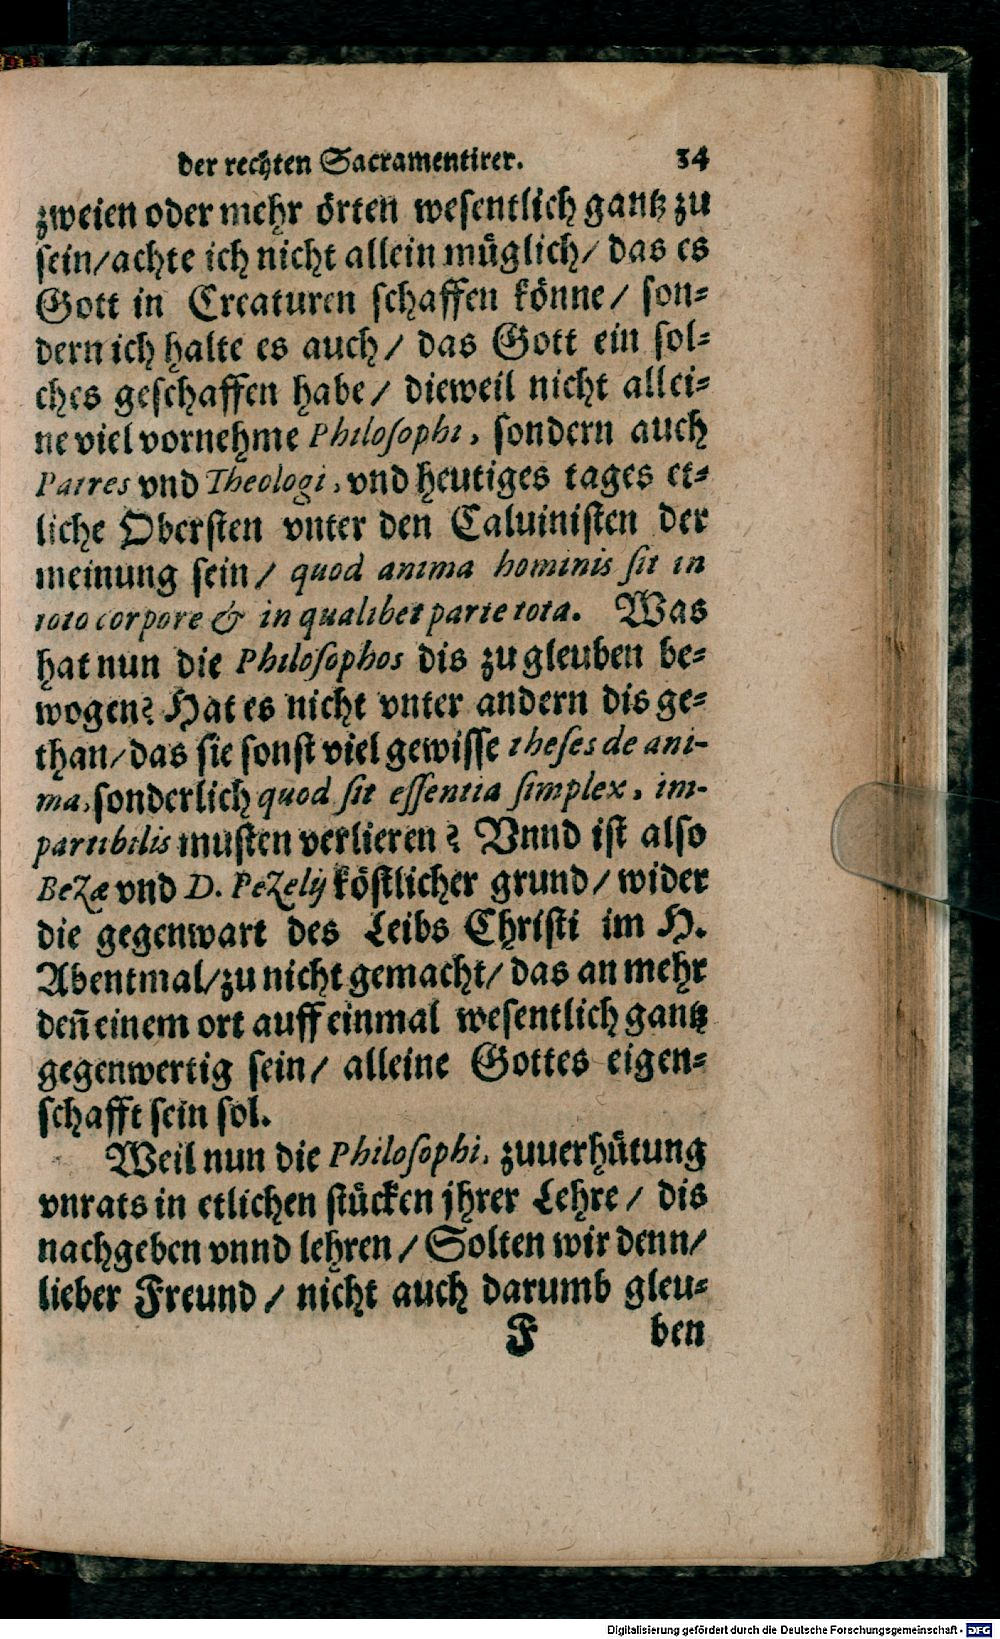 der rechten Sacramentirer. 34
zweien oder mehr örten wesentlich gantz zu
sein/achte ich nicht allein müglich/ das es
Gott in Creaturen schaffen könne/ son⸗
dern ich halte es auch/ das Gott ein sol⸗
ches geschaffen habe/ dieweil nicht allei⸗
ne viel vornehme Philosophi, sondern auch
Patres vnd Theologi, vnd heutiges tages et⸗
liche Obersten vnter den Caluinisten der
meinung sein/ quod anima hominis sit in
toto corpore & in qualibet parte tota. Was
hat nun die Philosophos dis zu gleuben be⸗
wogen? Hat es nicht vnter andern dis ge⸗
than/das sie sonst viel gewisse theses de ani-
ma, sonderlich quod sit essentia simplex, im-
partibilis musten verlieren? Vnnd ist also
Bezæ vnd D. Pezelij köstlicher grund/ wider
die gegenwart des Leibs Christi im H.
Abentmal/zu nicht gemacht/ das an mehr
deñ einem ort auff einmal wesentlich gantz
gegenwertig sein/ alleine Gottes eigen⸗
schafft sein sol.
Weil nun die Philosophi, zuuerhütung
vnrats in etlichen stücken jhrer Lehre/ dis
nachgeben vnnd lehren/ Solten wir denn/
lieber Freund/ nicht auch darumb gleu⸗
F ben
Digitalisierung gefördert durch die Deutsche Forschungsgemeinschaft - DFG